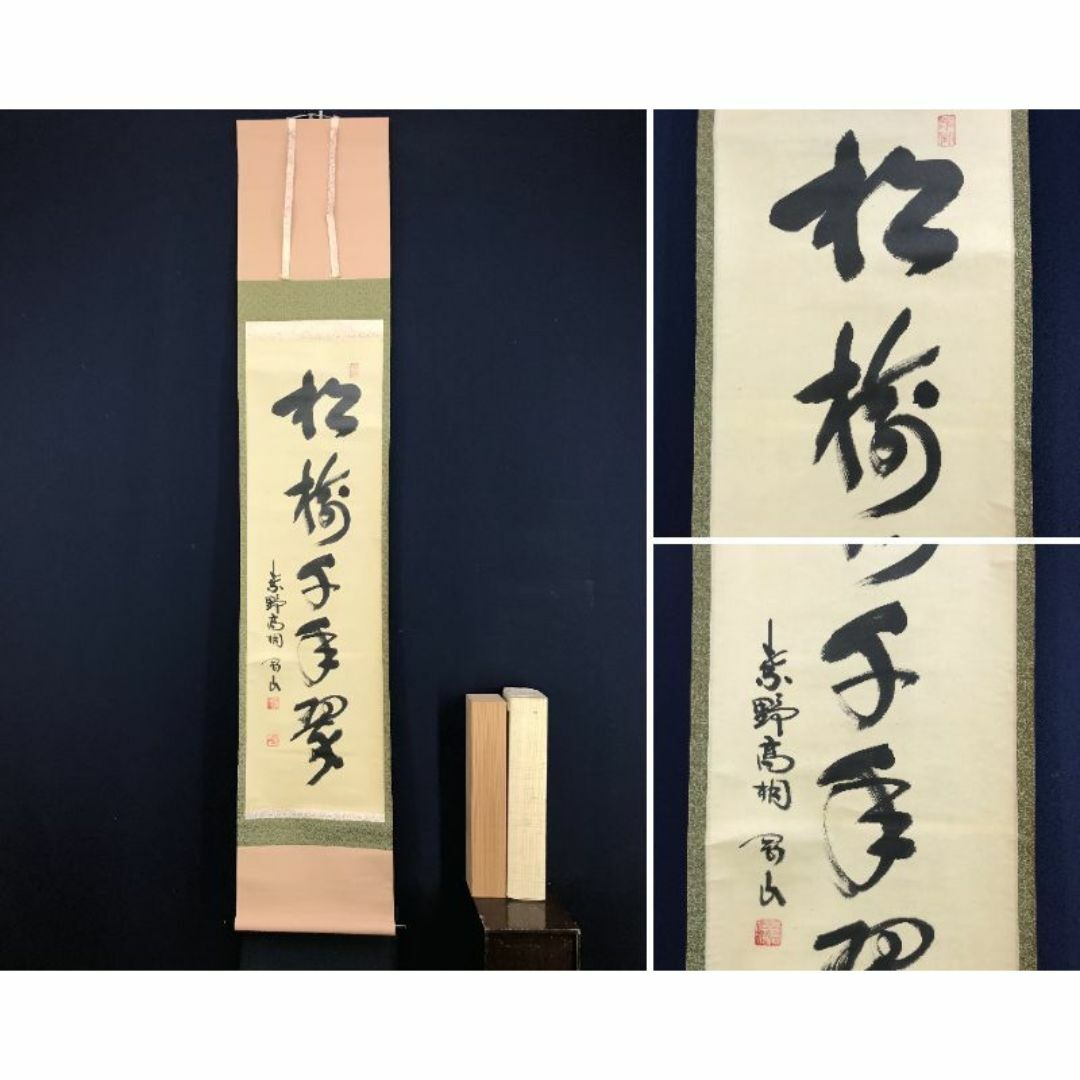 松樹千年翠
紫野高桐 剛山
松樹
千年翠
紫野高桐 剛山